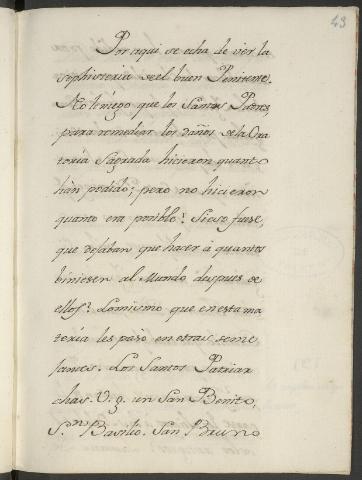 43
Por aqui se echa de ver la
sophisteria de el buen Teniente.
No le niego que los Santos Padres,
para remediar los daños de la Ora
toria Sagrada hicieron quanto
han podido; pero no hicieron
quanto era posible? Si eso fuese,
que dejaban que hacer à quantos
biniesen al Mundo despues de
ellos? Lo mismo que en esta ma
teria les pasó en otras seme
jantes. Los Santos Patriar
chas. V. g. un San Benito,
Sn Basilio. San Bruno